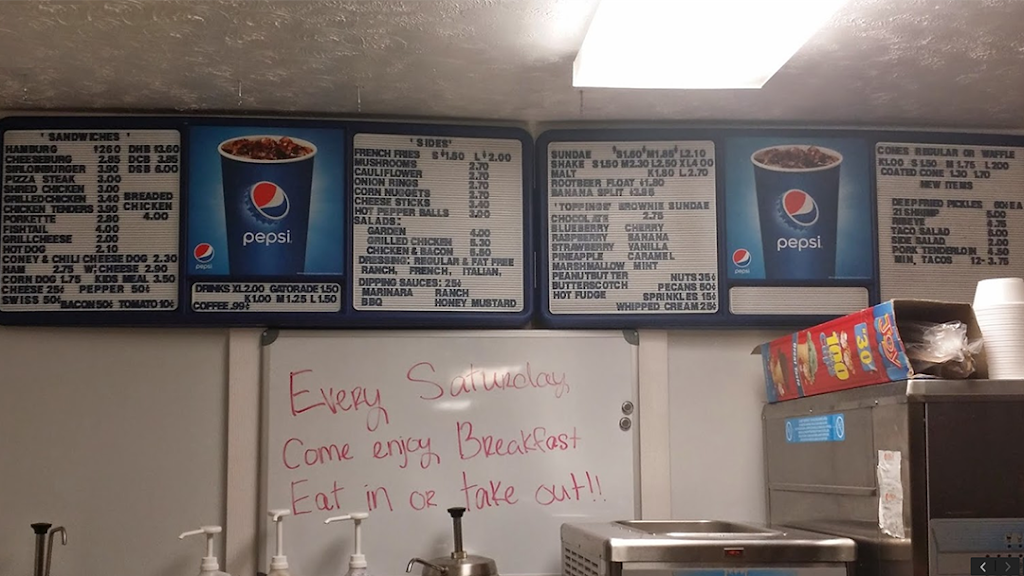 ' SANDWICHES '
HAMBURG $2.60 DHB $3.60
CHEESEBURG 2.85 DCB 3.85
SIRLOINBURGER 3.90 DSB 6.00
STEAK 3.00
SHRED CHICKEN 3.00
GRILLED CHICKEN 3.40 BREADED
CHICKEN TENDERS 3.30 CHICKEN
PORKETTE 2.80 4.00
FISHTAIL 4.00
GRILL CHEESE 2.00
HOT DOG 2.10
CONEY & CHILI CHEESE DOG 2.30
HAM 2.75 W/CHEESE 2.90
CORN DOG 1.75
CHEESE 25¢ PEPPER 50¢
SWISS 50¢
BACON 50¢ TOMATO 10¢
pepsi
pepsi
DRINKS XL2.00 GATORADE 1.50
K1.00 M1.25 L1.50
COFFEE .99¢
' SIDES'
FRENCH FRIES S$1.50 L$2.00
MUSHROOMS 2.70
CAULIFLOWER 2.70
ONION RINGS 2.70
CORN NUGGETS 2.70
CHEESE STICKS 2.70
HOT PEPPER BALLS 3.00
SALADS:
GARDEN 4.00
GRILLED CHICKEN 5.30
CHICKEN & BACON 5.50
DRESSING: REGULAR & FAT FREE
RANCH, FRENCH, ITALIAN,
DIPPING SAUCES: 25¢
MARINARA RANCH
BBQ HONEY MUSTARD
SUNDAE S1.60 M1.85 L2.10
SHAKE S1.50 M2.30 L2.50 XL4.00
MALT K1.80 L2.70
ROOTBEER FLOAT $1.80
BANANA SPLIT $3.95
'TOPPINGS' BROWNIE SUNDAE
CHOCOLATE 2.75
BLUEBERRY CHERRY
RASPBERRY BANANA
STRAWBERRY VANILLA
PINEAPPLE CARAMEL
MARSHMALLOW MINT
PEANUTBUTTER NUTS 35¢
BUTTERSCOTCH PECANS 50¢
HOT FUDGE SPRINKLES 15¢
WHIPPED CREAM 25¢
pepsi
pepsi
CONES REGULAR OR WAFFLE
K1.00 S1.50 M1.75 L2.00
COATED CONE 1.30 1.70
NEW ITEMS
DEEP FRIED PICKLES 60¢ EA
TACO SALAD
PORK TENDERLOIN
MIN. TACOS 12-3.75
Every Saturday
Come enjoy Breakfast
Eat in or take out!!
100